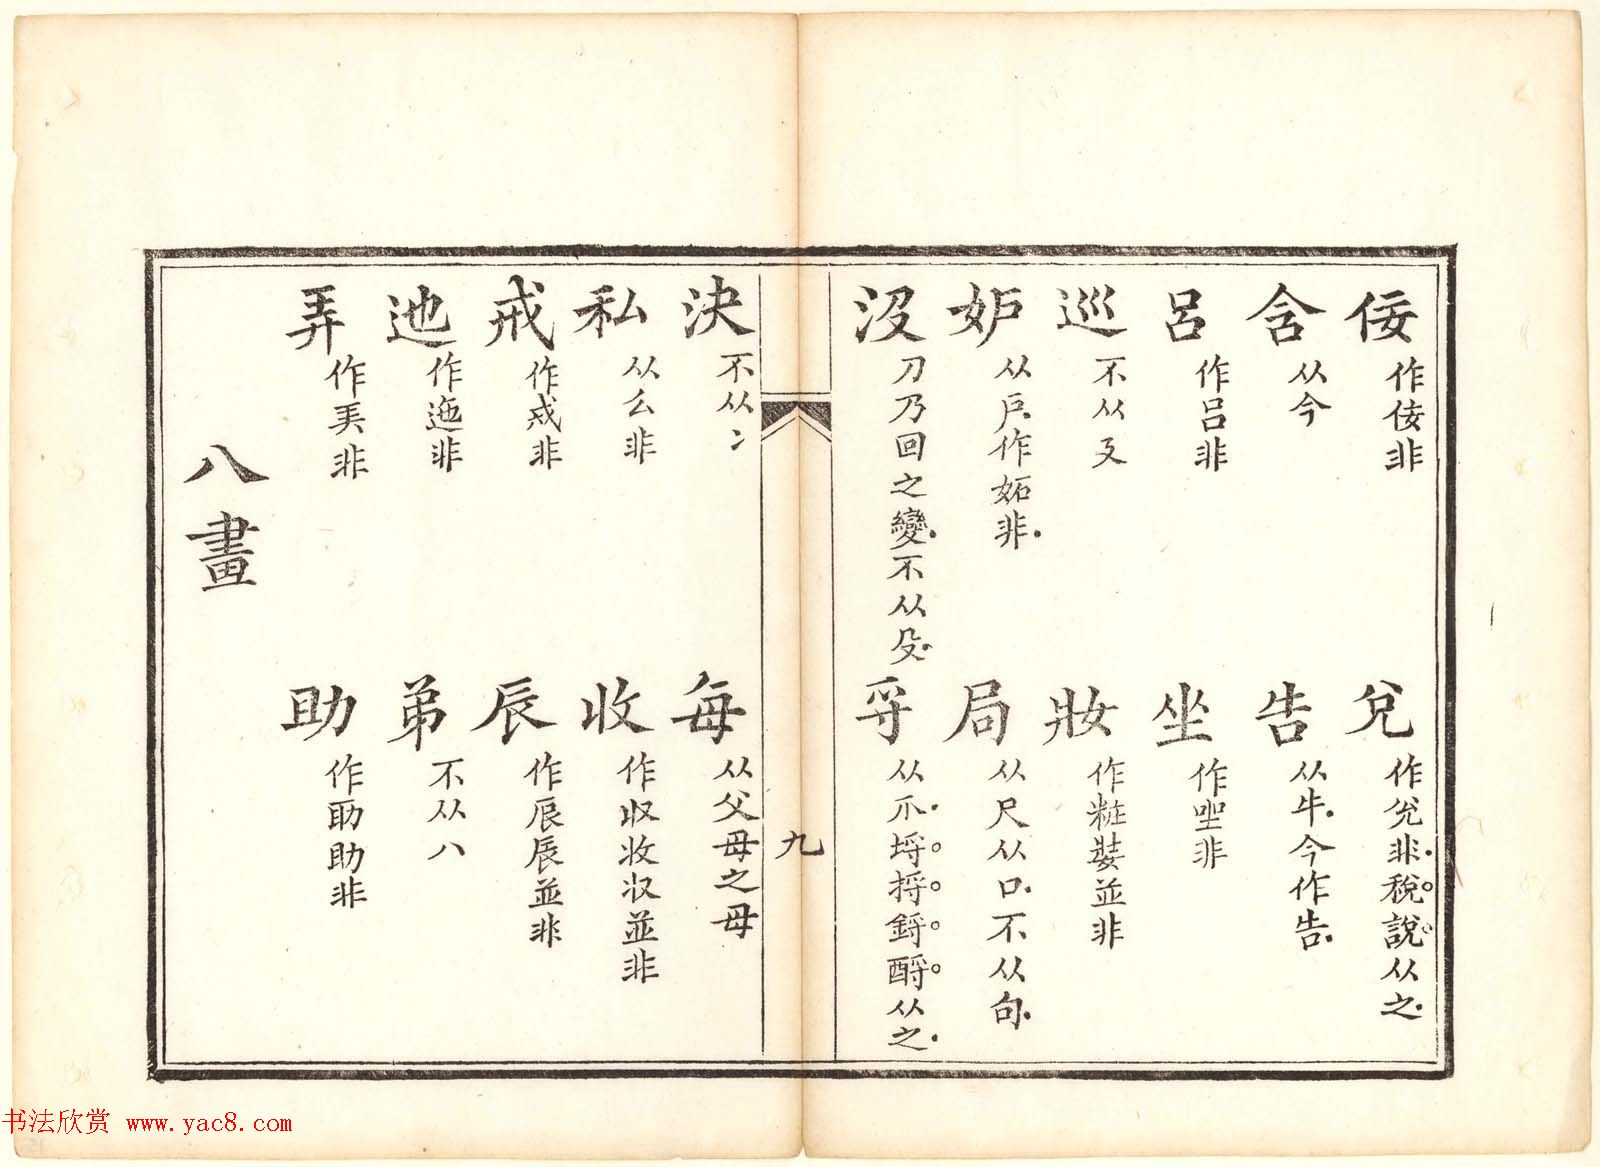 佞 作佞非
兌 作兊非稅說从之
含 从今
告 从牛今作告
呂 作吕非
坐 作㘴非
巡 不从㢟
妝 作粧㛍並非
妒 从戶作妬非
局 从尺从口不从句
沒 刀乃回之變不从殳
寽 从爪埒捋鋝酹从之
九
決 不从冫
每 从父母之母
私 从厶非
收 作収並非
戒 作戒非
辰 作辰並非
迆 作迤非
弟 不从八
弄 作挊非
助 作助非
八畫
书法欣赏 www.yac8.com